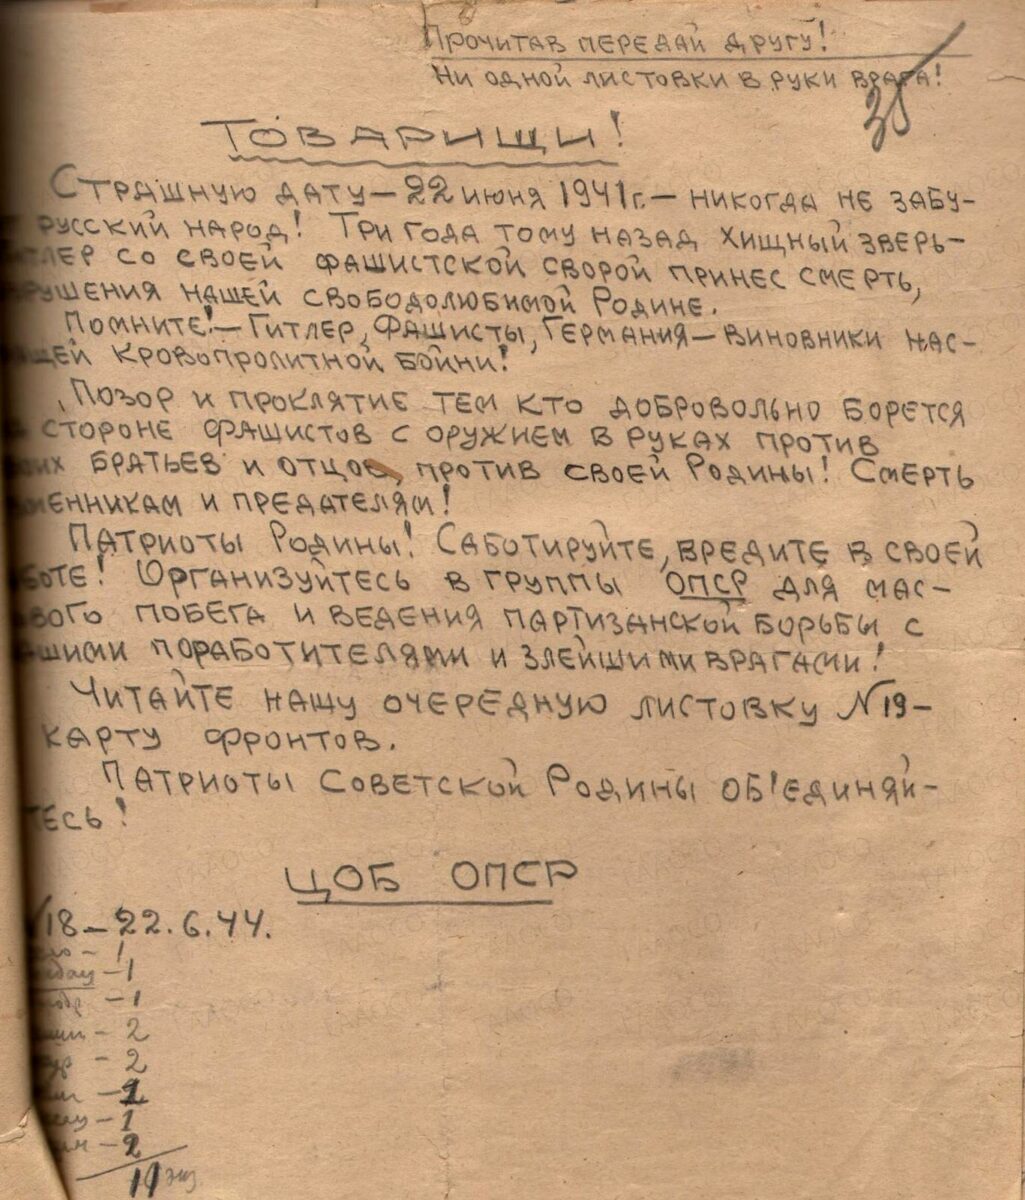 Прочитав передай другу!
Ни одной листовки в руки врага!
38
Товарищи!
Страшную дату – 22 июня 1941г. – никогда не забу-
русский народ! Три года тому назад хищный зверь –
тлер со своей фашистской сворой принес смерть,
рушения нашей свободолюбимой Родине.
Помните! – Гитлер, фашисты, Германия – виновники нас-
щей кровопролитной бойни!
Позор и проклятие тем кто добровольно борется
стороне фашистов с оружием в руках против
оих братьев и отцов, против своей Родины! Смерть
менникам и предателям!
Патриоты Родины! Саботируйте, вредите в своей
боте! Организуйтесь в группы ОПСР для мас-
вого побега и ведения партизанской борьбы с
ашими поработителями и злейшими врагами!
Читайте нашу очередную листовку N19 –
карту фронтов.
Патриоты Советской Родины об'единяй-
тесь!
ЦОБ ОПСР
18 – 22.6.44.
– 1
– 1
– 1
– 2
– 2
– 1
– 2
11 экз